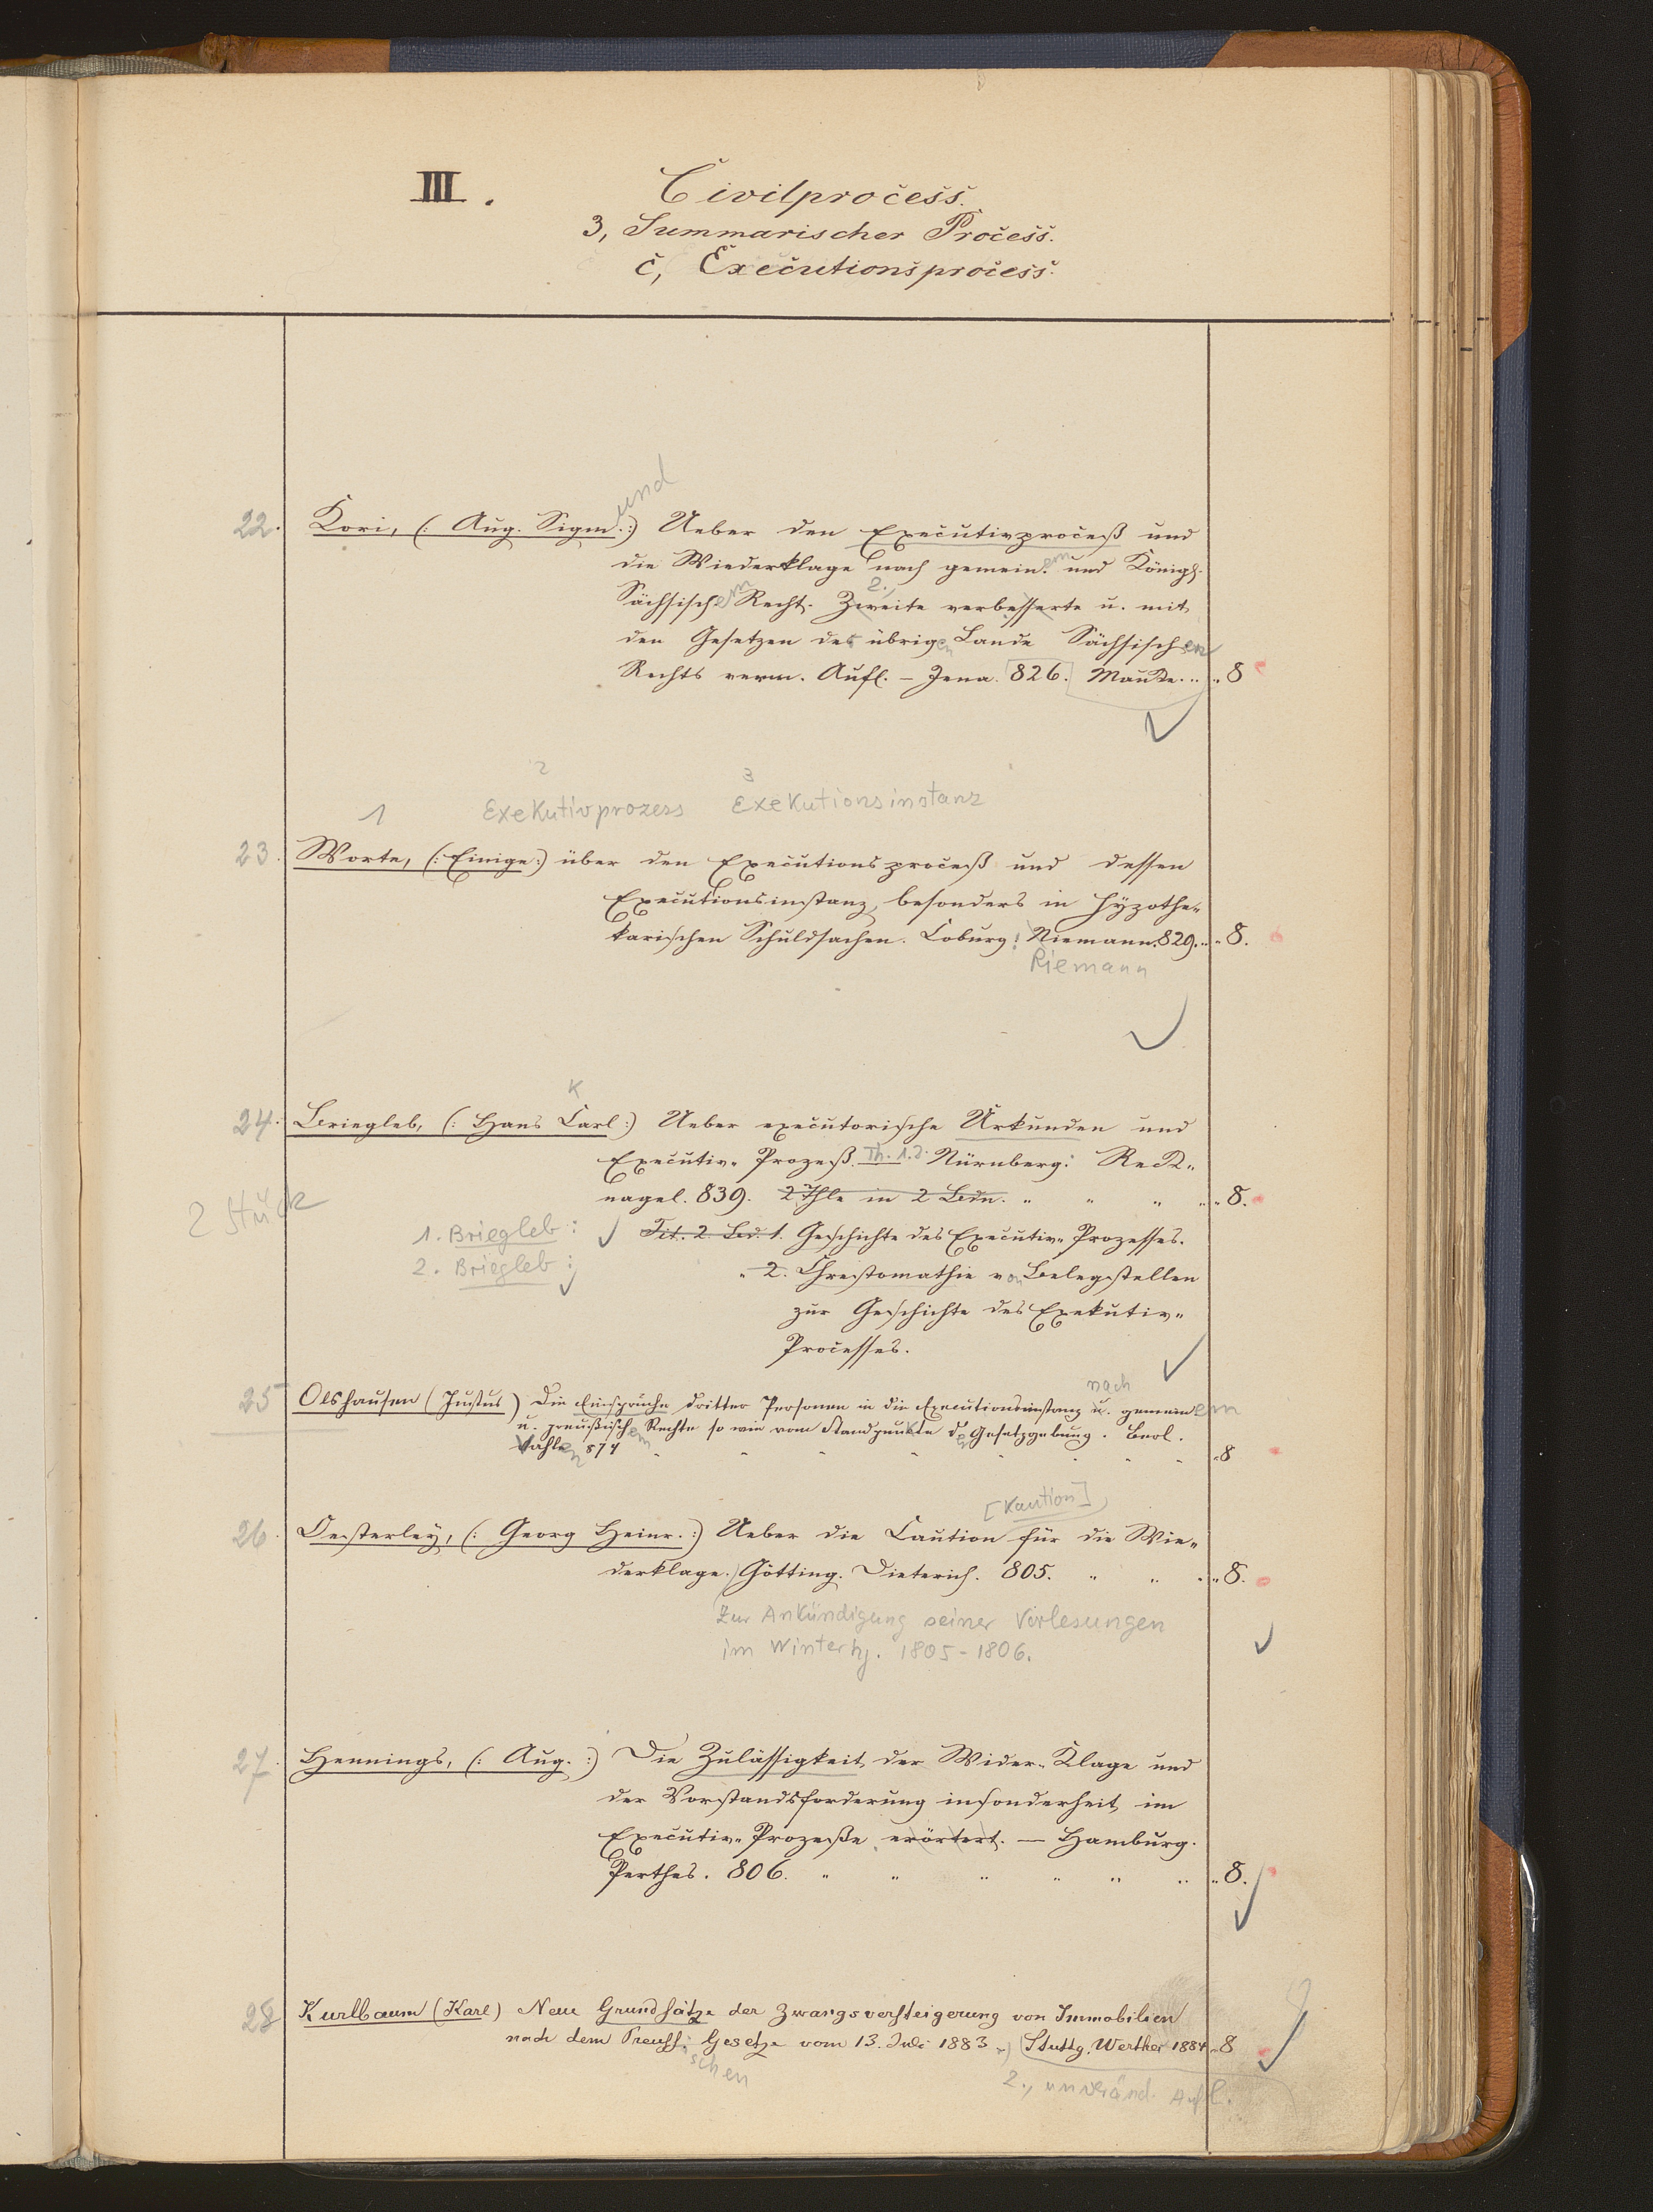 III. Civilprocess.
3, Summarischer Process.
c, Executionsprocess.
und
22. Kori, (: Aug. Sigm. :) Ueber den Executivproceß und
die Wiederklage nach gemein. em und Königl.
2.,
Sächsisch. em Recht. Zweite verbesserte u. mit
den Gesetzen der übrig. en Lande Sächsischen
Rechts verm. Aufl. – Jena. 826. Mauke. .. „ 8
2 3
1 Exekutivprozess Exekutionsinstanz
23. Worte, (: Einige :) über den Executionsproceß und dessen
Executionsinstanz, besonders in hypothe„
karischen Schuldsachen. Coburg: Niemann. 829. .. „ 8.
Riemann
K
24. Briegleb, (: Hans Carl :) Ueber executorische Urkunden und
Executiv„ Prozeß. Th. 1.2. Nürnberg: Reck„
nagel. 839. 2 Thle in 2 Bdn. „ „ „ „ 8.
2 Stück
1. Briegleb: Tit. 2. Bd. 1. Geschichte des Executiv„ Prozesses.
2. Briegleb: „ 2. Chrestomathie von Belegstellen
zur Geschichte des Exekutiv„
Processes.
nach
25 Olshausen (Justus) Die Einsprüche dritter Personen in die Executionsinstanz u. gemeinem
u. preußischem Rechte so wie vom Standpunkte der Gesetzgebung. Berl.
Vahlen 874 „ 8
[Kaution]
26. Oesterley, (: Georg Heinr. :) Ueber die Caution für die Wie„
derklage. Götting. Dieterich. 805. „ „ „ 8.
Zur Ankündigung seiner Vorlesungen
im Winterhj. 1805-1806.
27. Hennings, (: Aug. :) Die Zulässigkeit der Wider„ Klage und
der Vorstandsforderung insonderheit im
Executiv„ Prozeße erörtert. — Hamburg.
Perthes. 806. „ „ „ „ „ „ „ 8.
28 Kurlbaum (Karl) Neue Grundsätze der Zwangsversteigerung von Immobilien
nach dem Preuss. Gesetze vom 13. Juli 1883 Stuttg. Werther 1884 „ 8
schen
2., unveränd. Aufl.